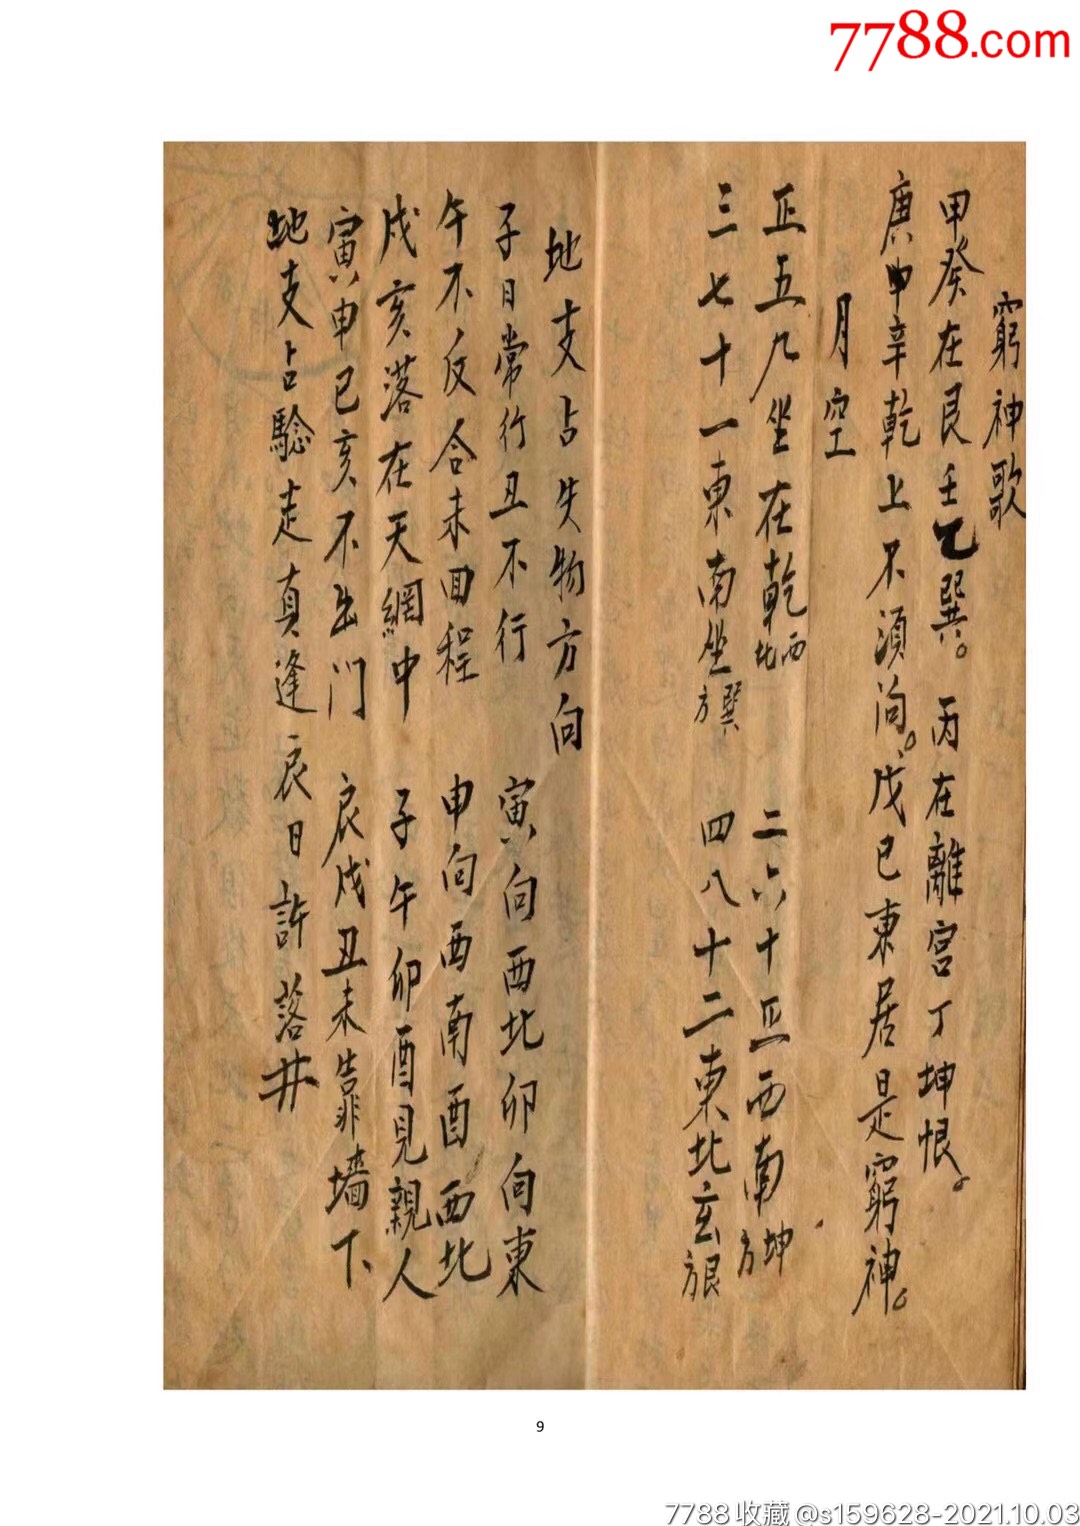 7788.com
窮神歌
甲癸在艮壬乙巽。丙在離宮丁坤恨。
庚申辛乾上不須向。戊巳東居是窮神。
月空
正五九坐在乾西北 二六十正西南坤方
三七十一東南坐巽方 四八十二東北玄艮方
地支占失物方向
子日常行丑不行 寅向西北卯向東
午不反合未回程 申向西南酉西北
戍亥落在天網中 子午卯酉見親人
寅申巳亥不出门 辰戍丑未靠墻下
地支占騐走真逢 辰日許落井
9
7788收藏@s159628-2021.10.03